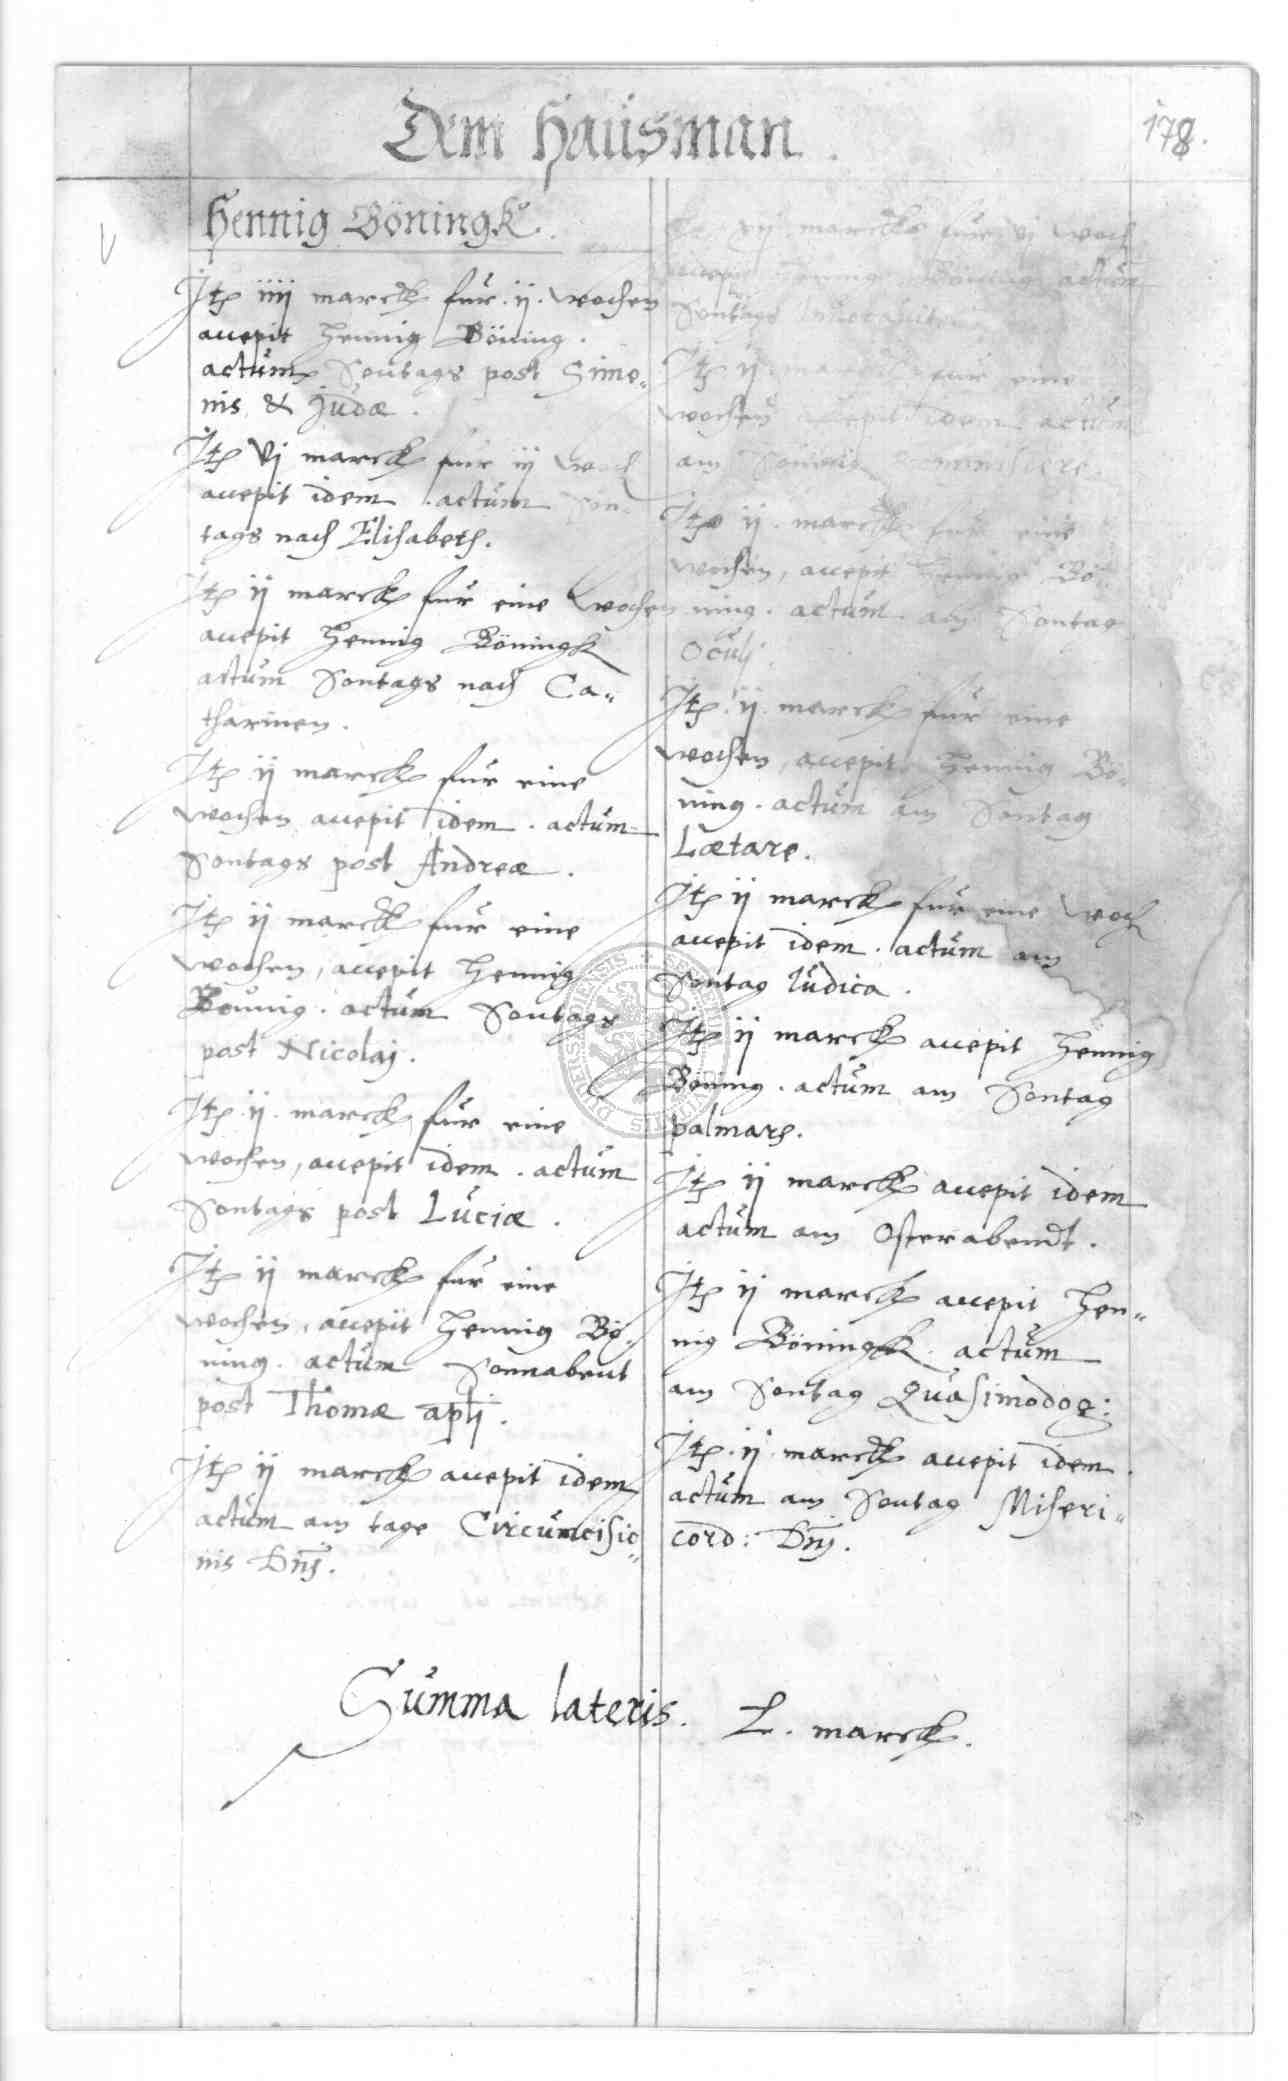 Dem Hausman.
178.
Hennig Böningk.
Itē iiij marck für .ij. wochen
accepit Hennig Böning.
actum Sontags post Simo„
nis & Judæ.
Itē vj marck für iij woch
accepit idem. actum Son„
tags nach Elisabeth.
Itē ij marck für eine wochen
accepit Hennig Böningk
actum Sontags nach Ca„
tharinen.
Itē ij marck für eine
wochen accepit idem. actum
Sontags post Andreæ.
Itē ij marck für eine
wochen, accepit Hennig
Bönnig. actum Sontags
post Nicolaj.
Itē ij. marck für eine
wochen, accepit idem. actum
Sontags post Luciæ.
Itē ij marck für eine
wochen, accepit Hennig Bö„
ning. actum Sonnabent
post Thomæ aplj.
Itē ij marck accepit idem
actum am tage Circumcisio„
nis Dnj.
marck für vj woch
accepit Hennig Böning actum
Sontags Invocavit
Itē ij marck für eine
wochen accepit idem actum
am Sontag Reminiscere.
Itē ij. marck für eine
wochen, accepit Hennig Bö„
ning. actum am Sontag
Oculj.
Itē .ij. marck für eine
wochen, accepit Hennig Bö„
ning. actum am Sontag
Lætare.
Itē ij marck für eine woch
accepit idem. actum am
Sontag Iudica.
Itē ij marck accepit Hennig
Böning. actum am Sontag
palmarȝ.
Itē ij marck accepit idem
actum am Osterabendt.
Itē ij marck accepit Hen„
nig Böningk. actum
am Sontag Quasimodog:
Itē .ij. marck accepit idem.
actum am Sontag Miseri„
cord: Dnj.
Summa lateris. L. marck.